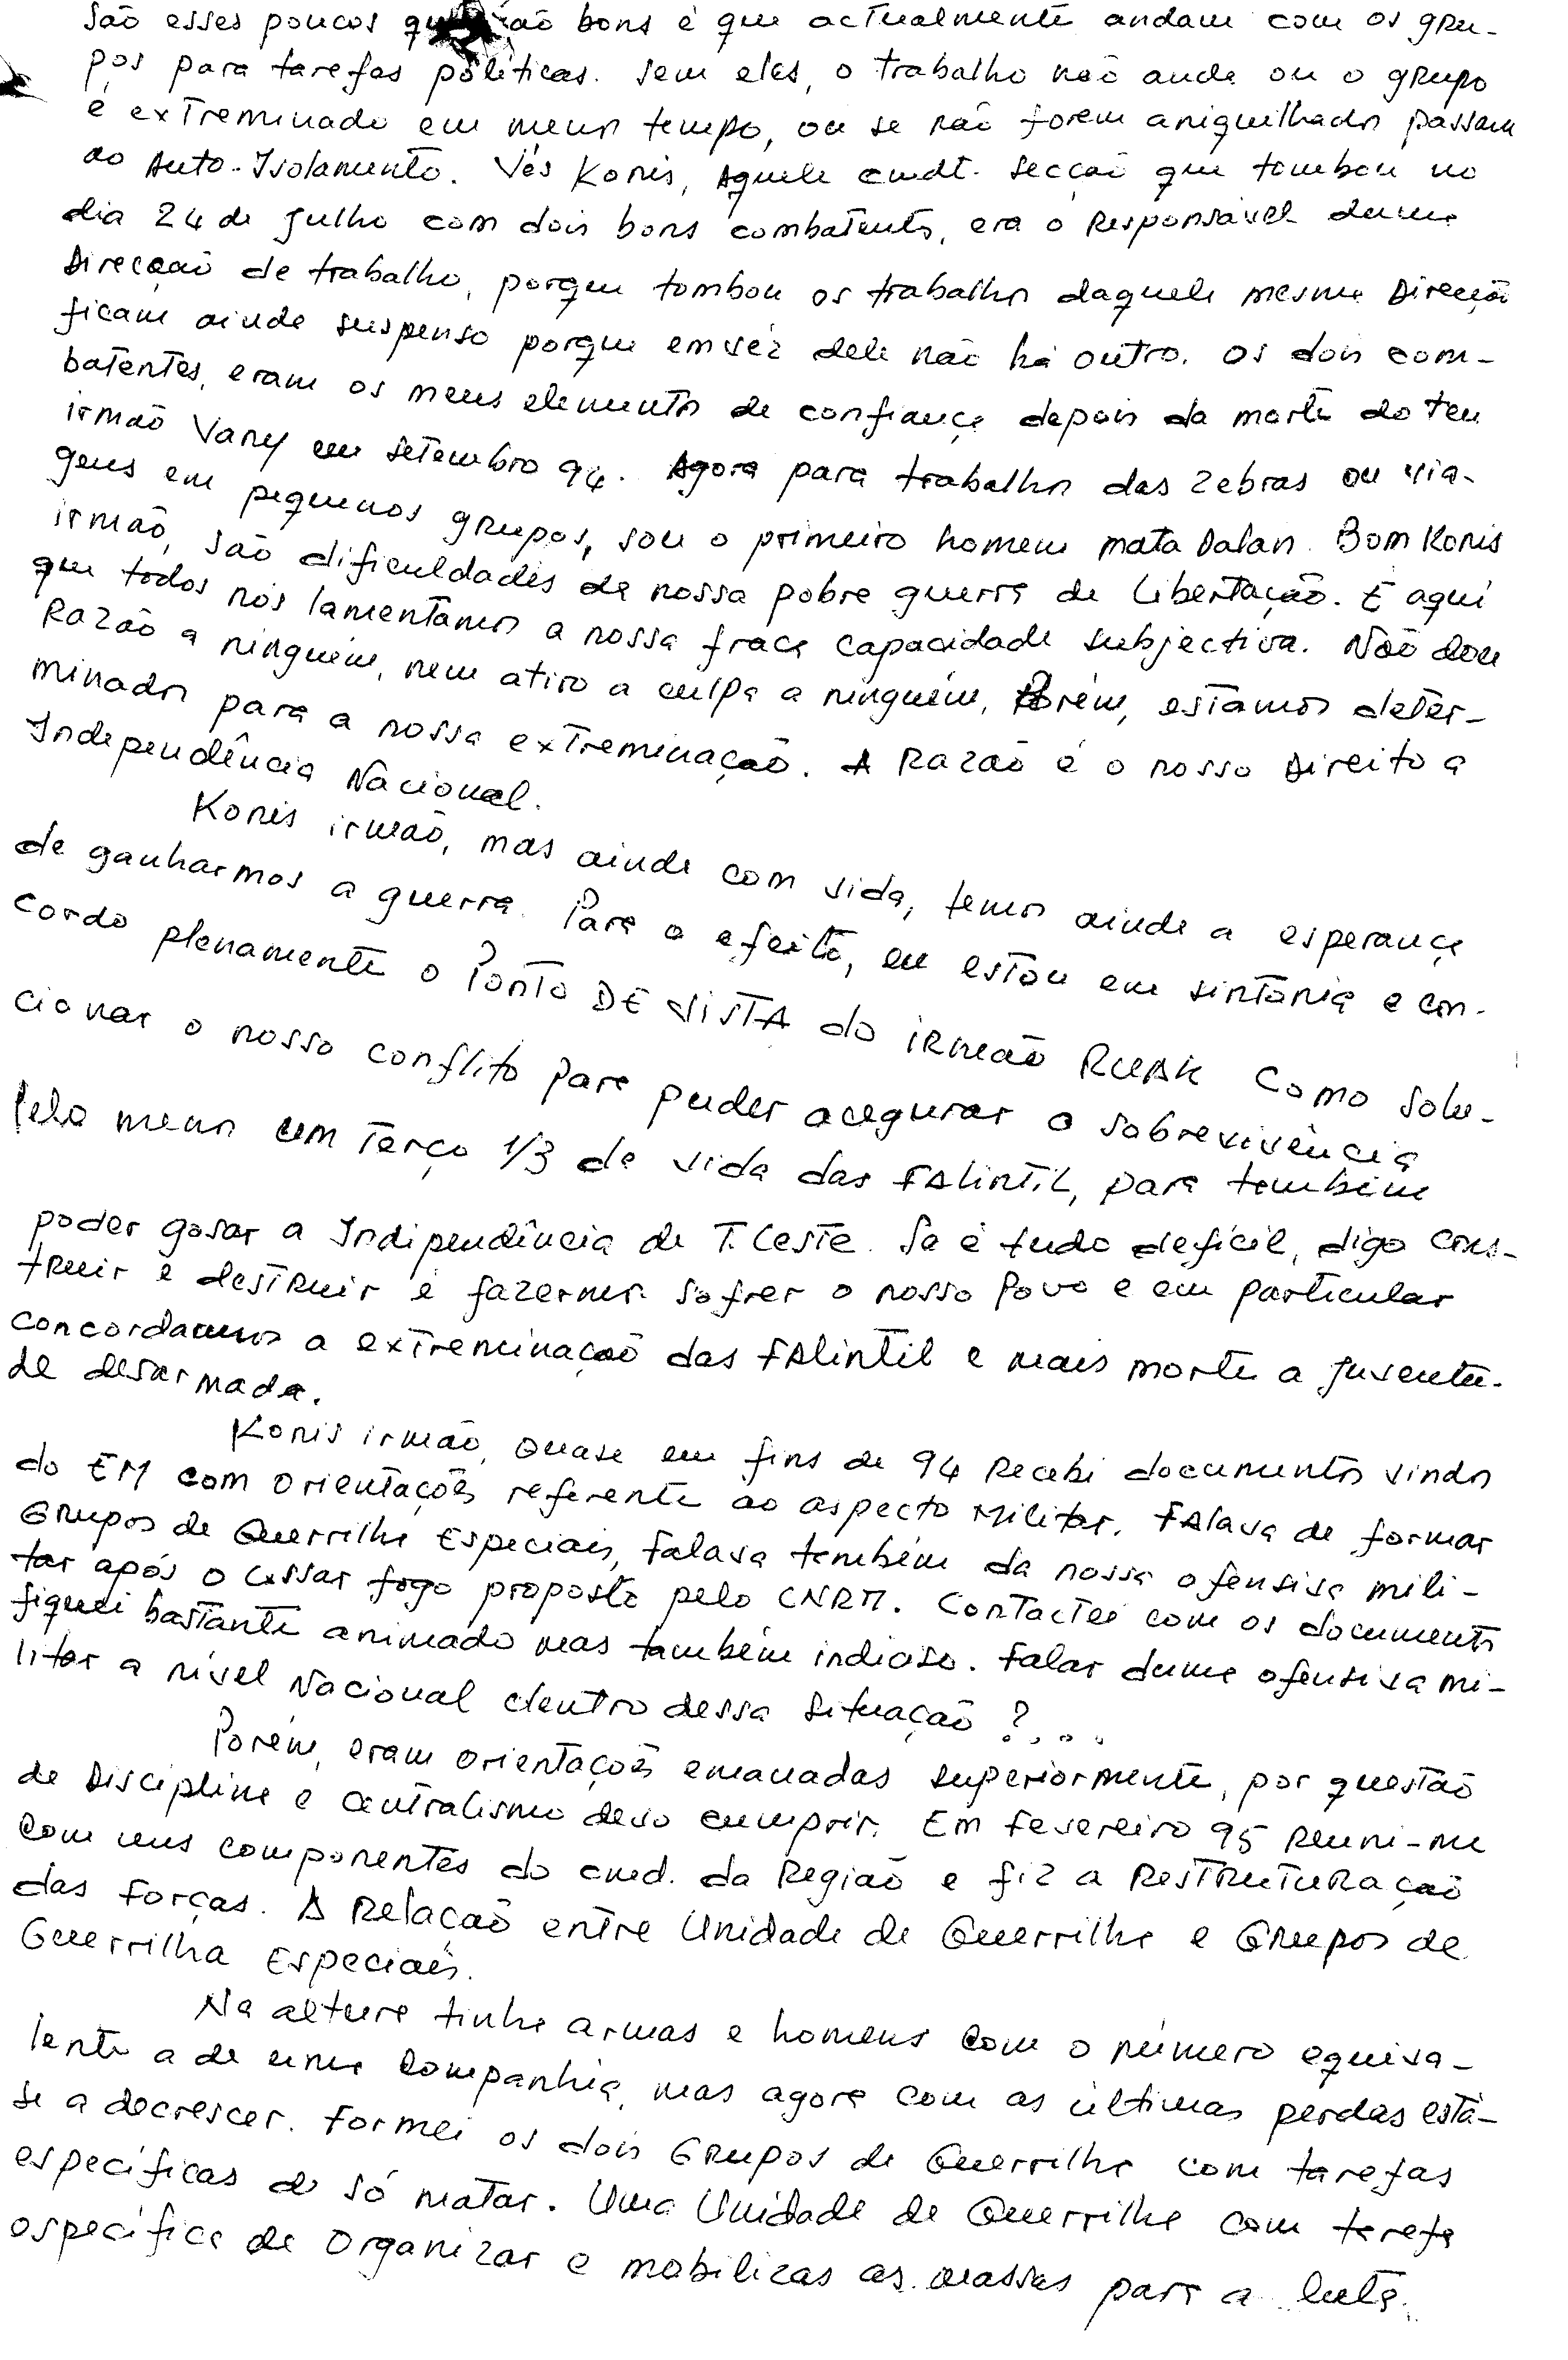 são esses poucos que são bons é que actualmente andam com os gru-
pos para tarefas políticas. Sem eles, o trabalho não anda ou o grupo
é extreminado em menos tempo, ou se não forem aniquilhados passam
ao Auto-Isolamento. Vês Konis, Aquele cmdt. Secção que tombou no
dia 24 de Julho com dois bons combatentes, era o Responsável duma
Direcção de trabalho, porque tombou os trabalhos daquele mesma Direcção
ficam ainda suspenso porque em vez dele não há outro. Os dois com-
batentes, eram os meus elementos de confiança depois da morte do teu
irmão Vany em Setembro 94. Agora para trabalhos das Zebras ou via-
gens em pequenos grupos, sou o primeiro homem mata Dalan. Bom Konis
irmão, são dificuldades da nossa pobre guerra de Libertação. E aqui
que todos nós lamentamos a nossa fraca capacidade subjectiva. Não dou
Razão a ninguém, nem atiro a culpa a ninguém, Porém, estamos deter-
minados para a nossa extreminação. A Razão é o nosso Direito a
Independência Nacional.
Konis irmão, mas ainda com vida, temos ainda a esperança
de ganharmos a guerra. Para o efeito, eu estou em sintonia e con-
cordo plenamente o Ponto DE VISTA do irmão RUAK como solu-
cionar o nosso conflito para puder acegurar a sobrevivência
Pelo menos um Terço 1/3 da vida das FAlintil, para também
poder gosar a Indipendência de T. Leste. Se é tudo defícil, digo cons-
truir é destruir é fazermos sofrer o nosso Povo e em particular
concordamos a extreminação das FAlintil e mais morte a juventu-
de desarmada.
Konis irmão, Quase em fins de 94 Recebi documentos vindos
do EM com orientações referente ao aspecto Militar. FAlava de formar
Grupos de Guerrilha Especiais, falava também da nossa ofensiva mili-
tar após o Cessar fogo proposto pelo CNRM. Contactei com os documentos
fiquei bastante animado mas também indioso. Falar duma ofensiva mi-
litar a nível Nacional dentro dessa situação ?...
Porém, eram orientações emanadas superiormente, por questão
de Disciplina e Centralismo devo cumprir. Em Fevereiro 95 Reuni-me
com uns componentes do cmd. da Região e fiz a RESTRUTURAção
das Forças. A Relação entre Unidade de Guerrilha e Grupos de
Guerrilha Especiais.
Na altura tinha armas e homens com o número equiva-
lente a de uma Companhia, mas agora com as últimas perdas está-
se a decrescer. Formei os dois Grupos de Guerrilha com tarefas
específicas de só matar. Uma Unidade de Guerrilha com tarefa
específica de Organizar e mobilizas as massas para a luta.